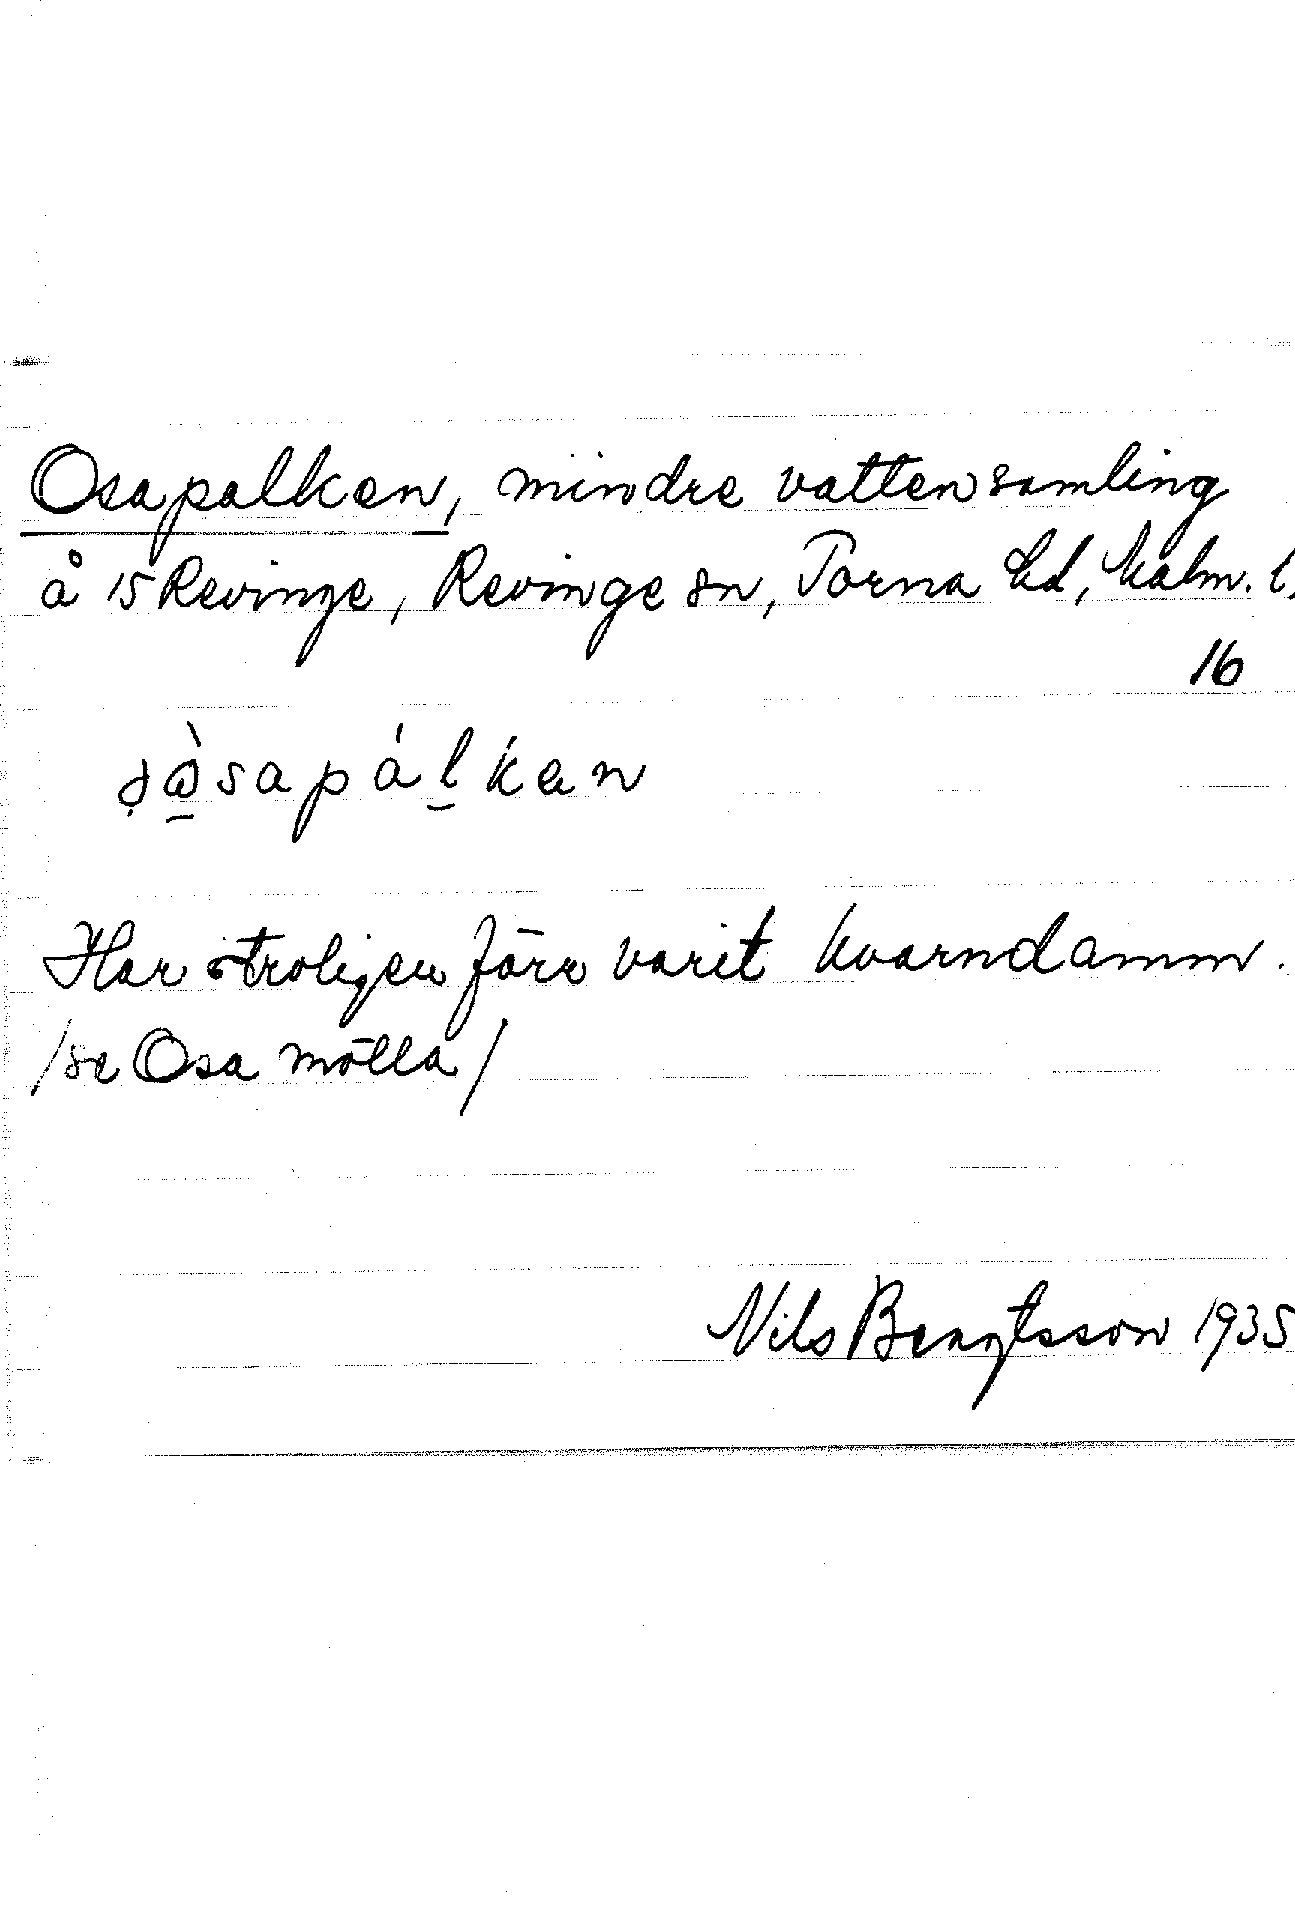 Osapalken, mindre vattensamling
å 15 Revinge, Revinge sn, Torna hd, Malm. l.
16
sapálkən
Har troligen förr varit kvarndamm.
/se Osa mölla/
Nils Bengtsson 1935